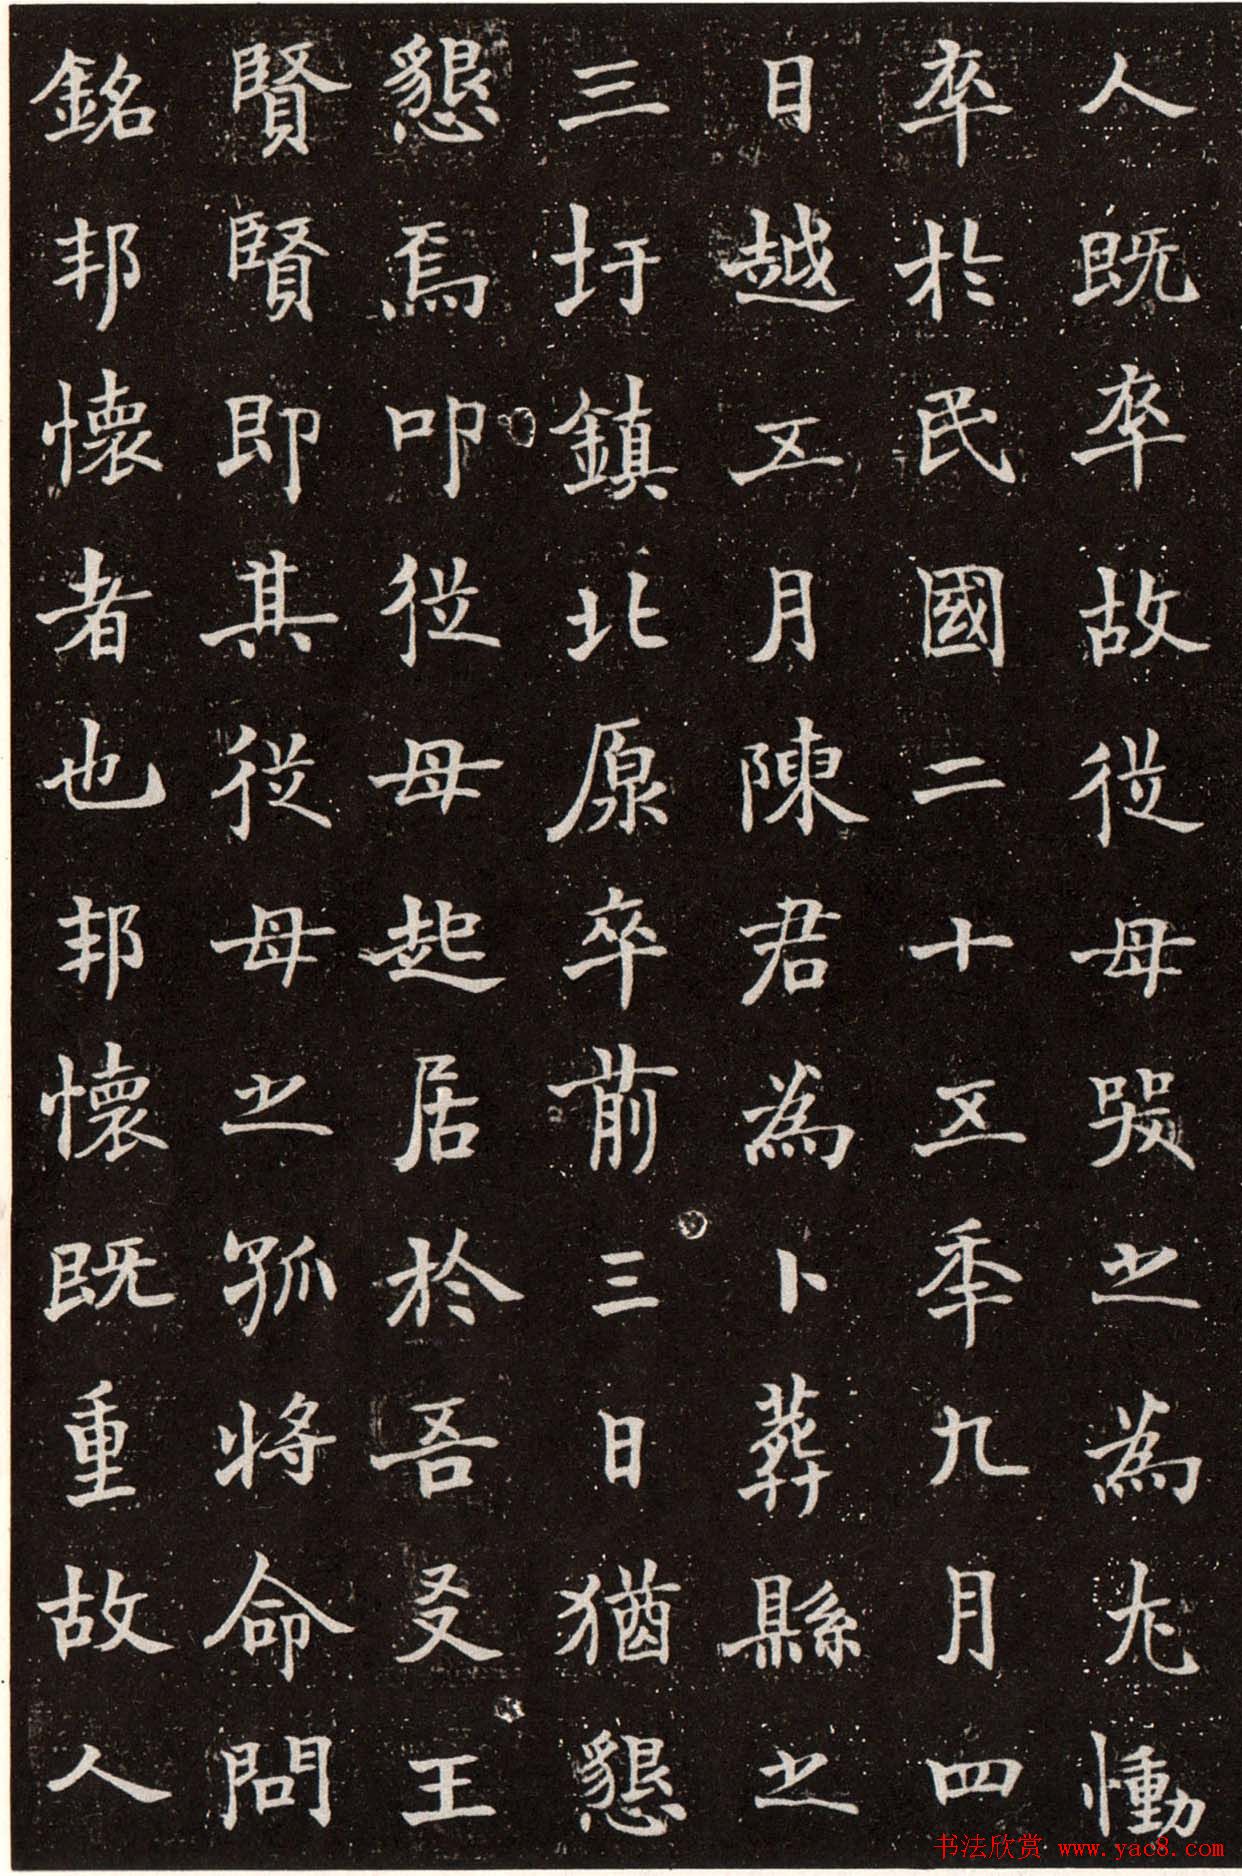 人既卒故從母哭之為尤慟
卒於民國二十五秊九月四
日越五月陳君為卜葬縣之
三圩鎮北原卒前三日猶懇
懇焉叩從母起居於吾友王
賢賢即其從母之孤將命問
銘邦懷者也邦懷既重故人
书法欣赏 www.yac8.com